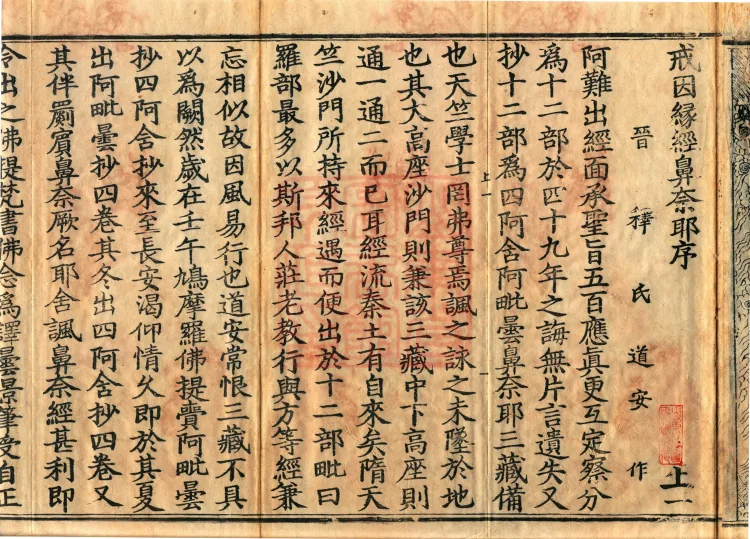 戒因緣經鼻奈耶序
上一
晉 釋 氏 道 安 作
阿難出經面承聖旨五百應真更互定察分
為十二部於四十九年之誨無片言遺失又
抄十二部為四阿舍阿毗曇鼻奈耶三藏備
上一
也天竺學士罔弗尊焉諷之詠之未墜於地
也其大高座沙門則兼該三藏中下高座則
通一通二而已耳經流秦土有自來矣隋天
竺沙門所持來經遇而便出於十二部毗曰
羅部最多以斯邦人莊老教行與方等經兼
忘相似故因風易行也道安常恨三藏不具
以為闕然歲在壬午鳩摩羅佛提賷阿毗曇
抄四阿舍抄來至長安渴仰情久即於其夏
出阿毗曇抄四卷其冬出四阿舍抄四卷又
其伴罽賓鼻奈厥名耶舍諷鼻奈經甚利即
令出之佛提梵書佛念為譯曇景筆受自正